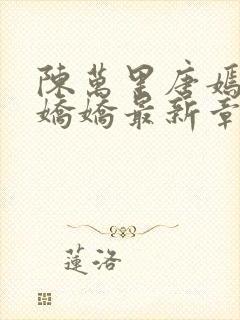 陳萬里唐嫣
嬌嬌最新章
蓮洛